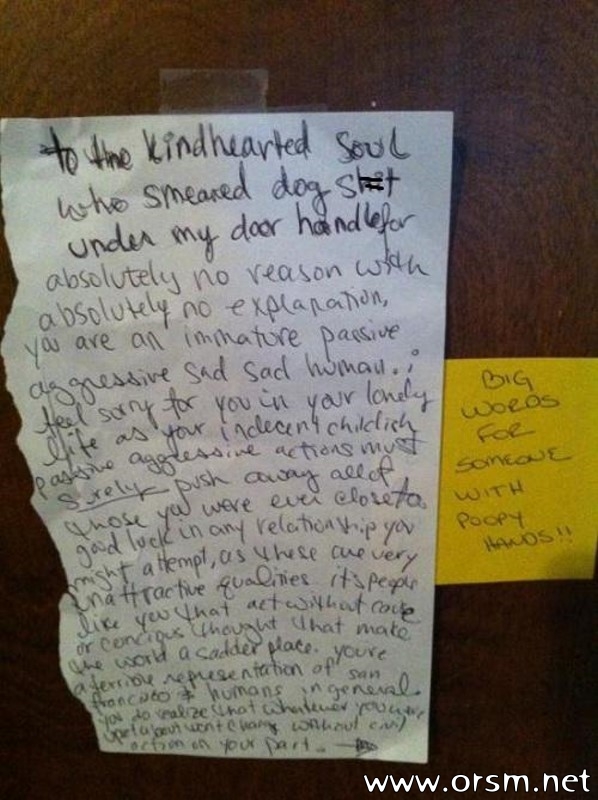 to the kindhearted soul
who smeared dog shit
under my door handle for
absolutely no reason with
absolutely no explanation,
you are an immature passive
aggressive sad sad human. i
feel sorry for you in your lonely
life as your indecent childish
passive aggressive actions must
surely push away all of
those you were ever close to.
good luck in any relationship you
might attempt, as these are very
unattractive qualities. its people
like you that act without cause
or concious thought that make
the world a sadder place. you're
a terrible representation of san
francisco & humans in general.
you do realize that whatever you're
upset about wont change without civil
action on your part.
BIG
WORDS
FOR
SOMEONE
WITH
POOPY
HANDS!!
www.orsm.net